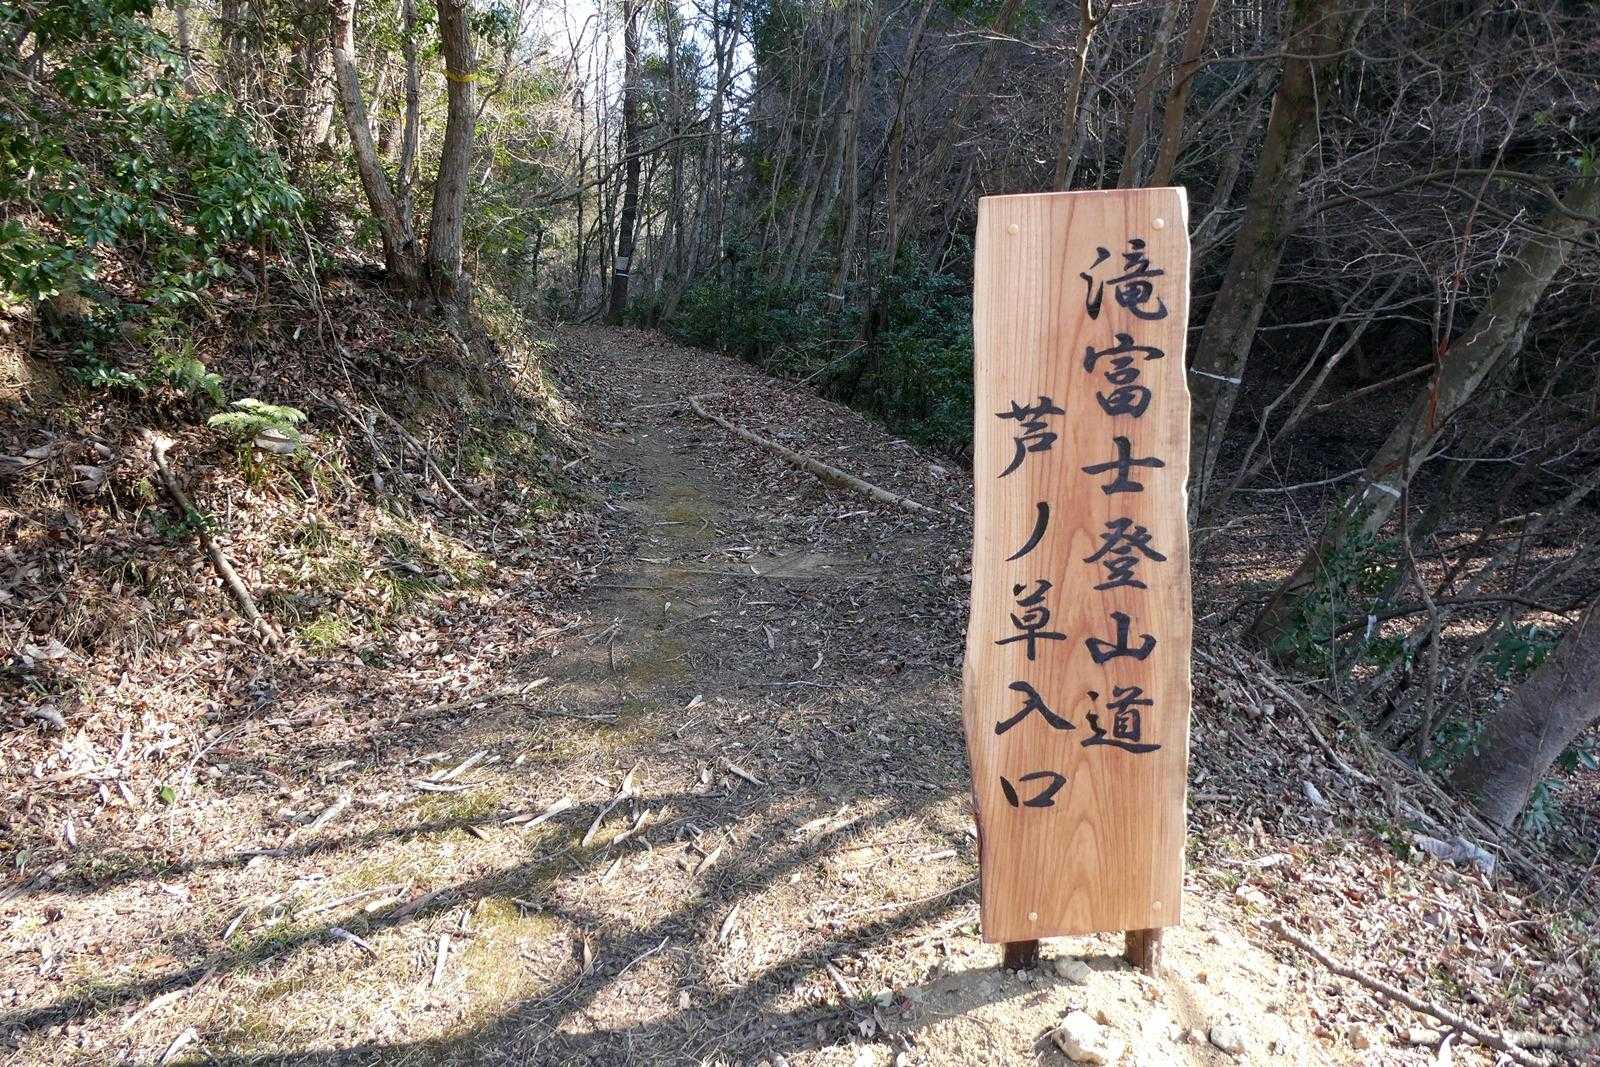 滝富士登山道
芦ノ草入口